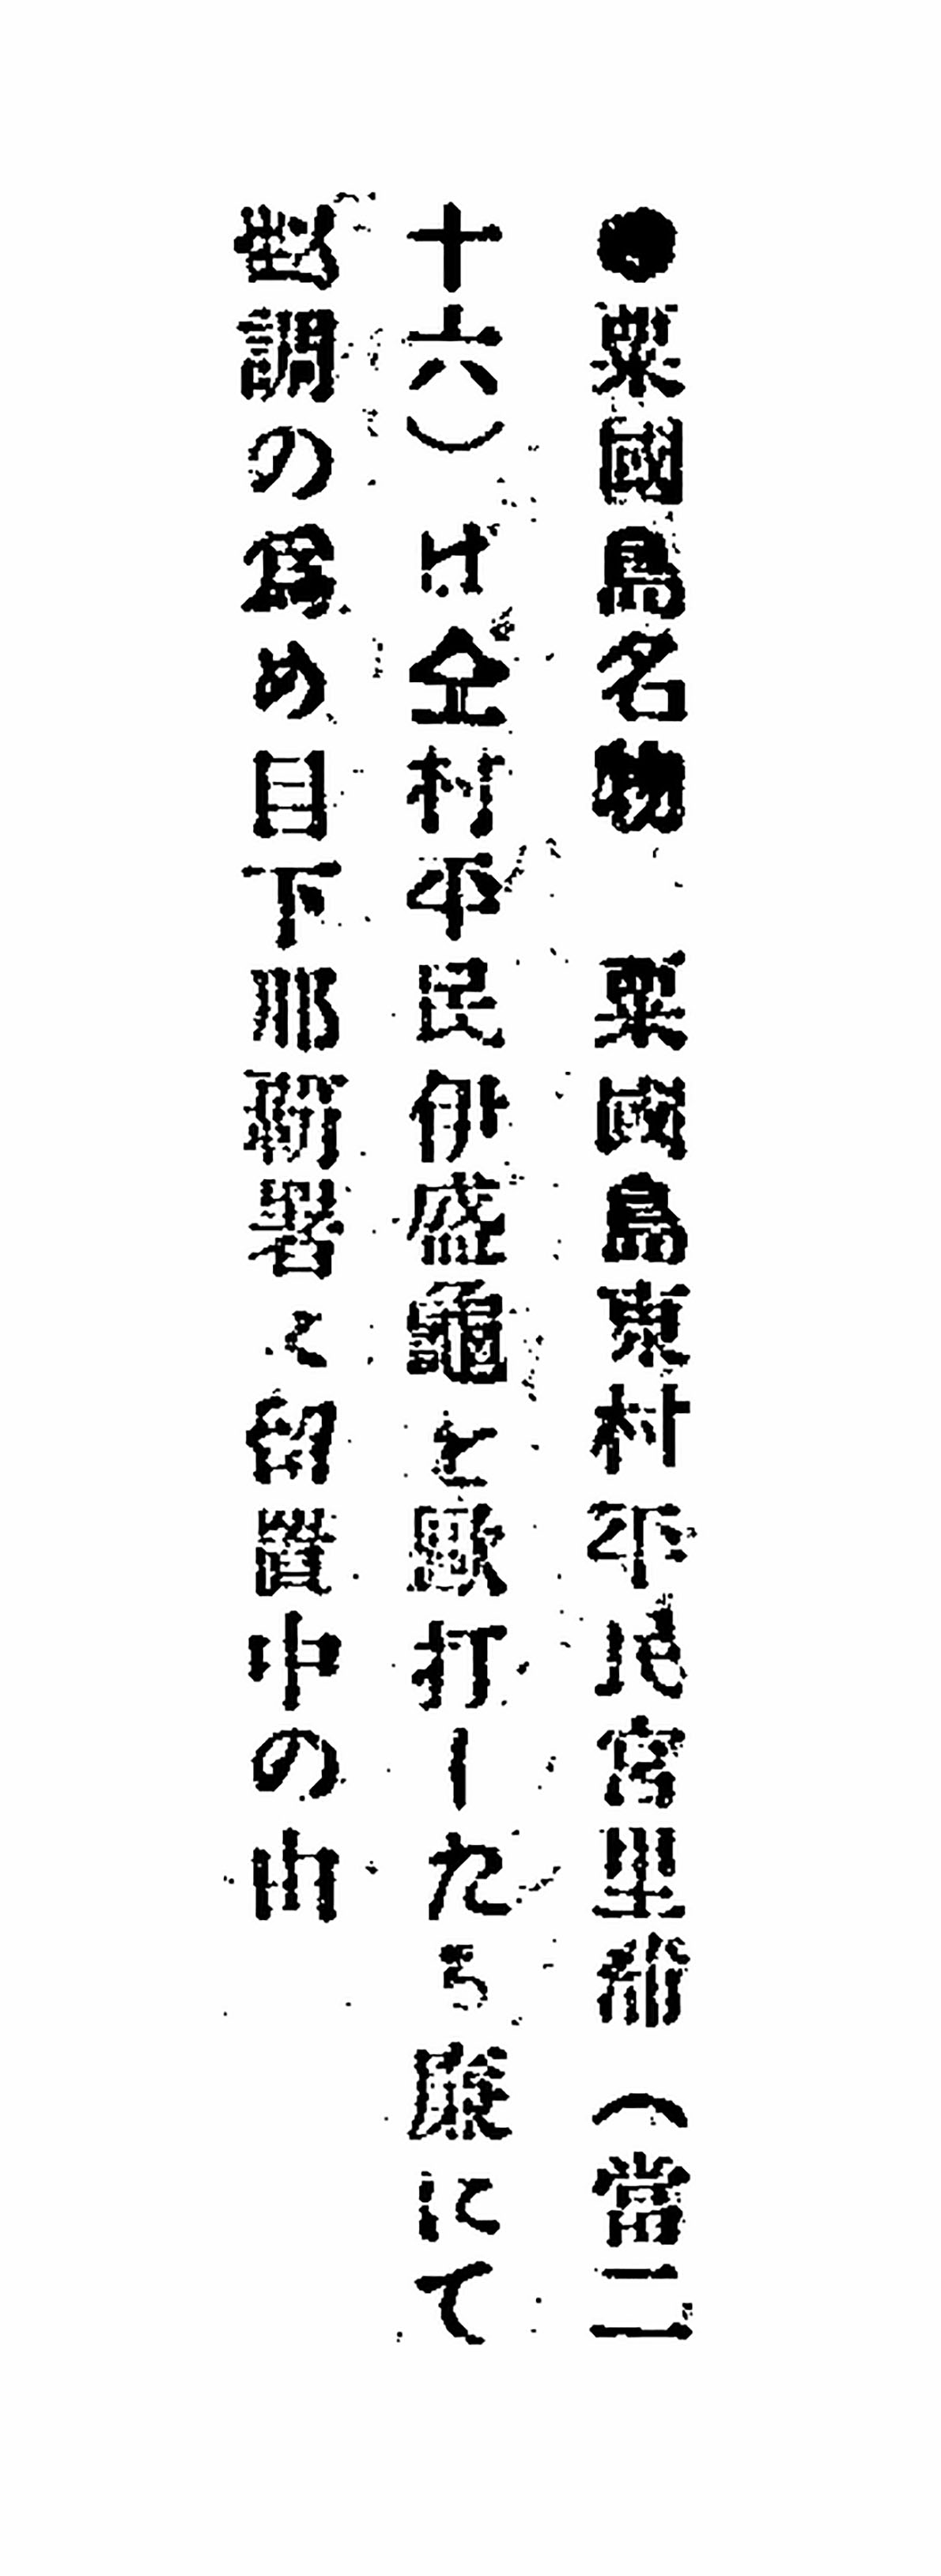 ●粟國島名物　粟國島東村平民宮里 （當二
十六）は仝村平民伊盛龜を毆打したる廉にて
取調の爲め目下那覇署く留置中の由